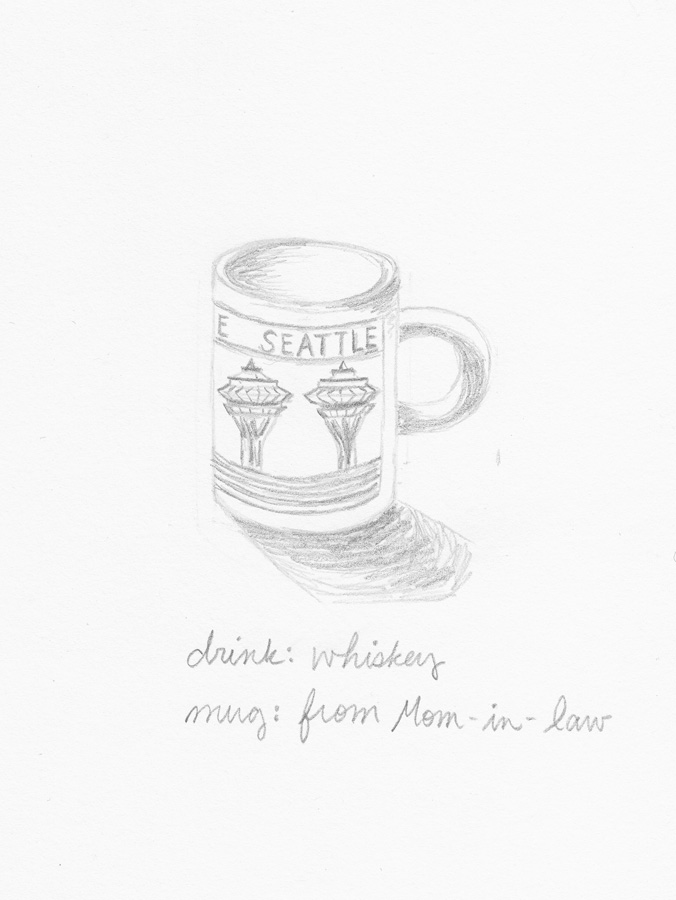 E SEATTLE
drink: whiskey
mug: from Mom-in-law